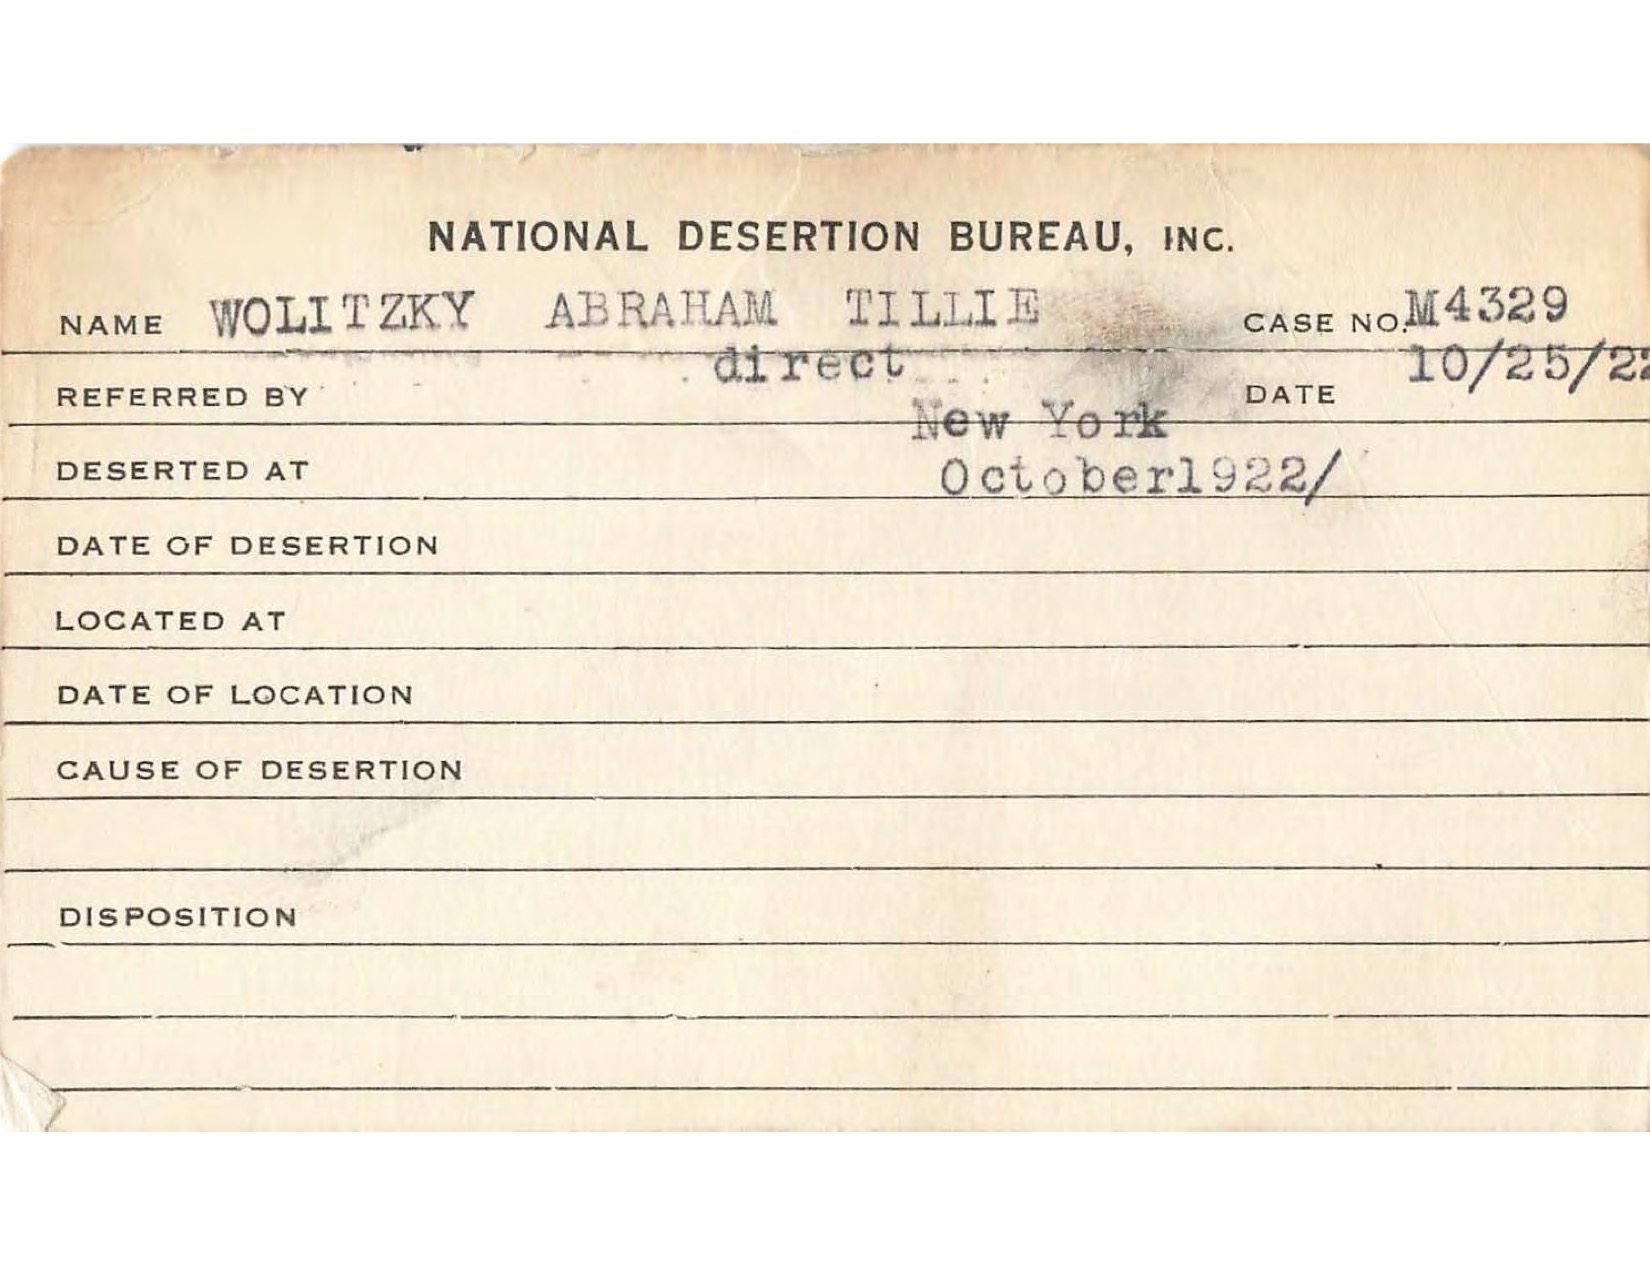 NATIONAL DESERTION BUREAU, INC.
NAME WOLITZKY ABRAHAM TILLIE CASE NO. M4329
REFERRED BY direct DATE 10/25/22
DESERTED AT New York
October1922/
DATE OF DESERTION
LOCATED AT
DATE OF LOCATION
CAUSE OF DESERTION
DISPOSITION